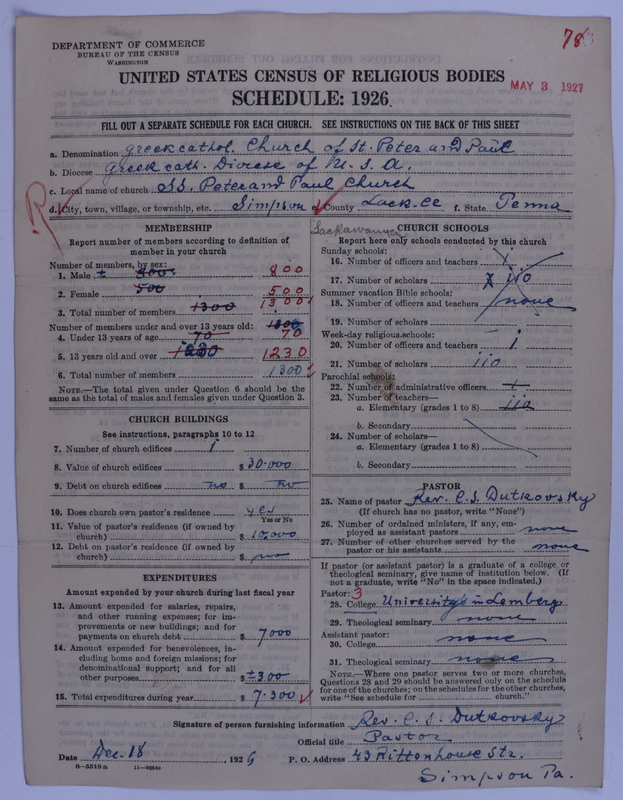 DEPARTMENT OF COMMERCE
BUREAU OF THE CENSUS
WASHINGTON
78
UNITED STATES CENSUS OF RELIGIOUS BODIES
MAY 3 1927
SCHEDULE: 1926.
FILL OUT A SEPARATE SCHEDULE FOR EACH CHURCH. SEE INSTRUCTIONS ON THE BACK OF THIS SHEET
a. Denomination Greek cathol. Church of St. Peter and Paul
b. Diocese Greek cath. Diocese of U. S. A.
c. Local name of church SS. Peter and Paul Church
d. City, town, village, or township, etc. Simpson e. County Lack. Co f. State Penna
Lackawanna
MEMBERSHIP
Report number of members according to definition of member in your church
Number of members, by sex:
1. Male 800 800
2. Female 500 500
3. Total number of members 1300 1300
Number of members under and over 13 years old: 1300
4. Under 13 years of age 70 70
5. 13 years old and over 1230 1230
6. Total number of members 1300
NOTE.—The total given under Question 6 should be the same as the total of males and females given under Question 3.
CHURCH BUILDINGS
See instructions, paragraphs 10 to 12
7. Number of church edifices 1
8. Value of church edifices $ 30.000
9. Debt on church edifices no $ no
10. Does church own pastor's residence yes
Yes or No
11. Value of pastor's residence (if owned by church) $ 10,000
12. Debt on pastor's residence (if owned by church) $ no
EXPENDITURES
Amount expended by your church during last fiscal year
13. Amount expended for salaries, repairs, and other running expenses; for improvements or new buildings; and for payments on church debt $ 7000
14. Amount expended for benevolences, including home and foreign missions; for denominational support; and for all other purposes $ 300
15. Total expenditures during year $ 7.300
CHURCH SCHOOLS
Report here only schools conducted by this church
Sunday schools:
16. Number of officers and teachers 1
17. Number of scholars 110
Summer vacation Bible schools:
18. Number of officers and teachers none
19. Number of scholars
Week-day religious schools:
20. Number of officers and teachers 1
21. Number of scholars 110
Parochial schools:
22. Number of administrative officers 1
23. Number of teachers—
a. Elementary (grades 1 to 8) 110
b. Secondary
24. Number of scholars—
a. Elementary (grades 1 to 8)
b. Secondary
PASTOR
25. Name of pastor Rev. C. S. Dutkovsky
(If church has no pastor, write "None")
26. Number of ordained ministers, if any, employed as assistant pastors none
27. Number of other churches served by the pastor or his assistants none
If pastor (or assistant pastor) is a graduate of a college or theological seminary, give name of institution below. (If not a graduate, write "No" in the space indicated.)
Pastor: 3
28. College University in Lemberg
29. Theological seminary none
Assistant pastor:
30. College none
31. Theological seminary none
NOTE.—Where one pastor serves two or more churches, Questions 28 and 29 should be answered only on the schedule for one of the churches; on the schedules for the other churches, write "See schedule for church."
Signature of person furnishing information Rev. C. S. Dutkovsky
Official title Pastor
Date Dec. 18, 1926 P. O. Address 43 Rittenhouse Str.
Simpson Pa.